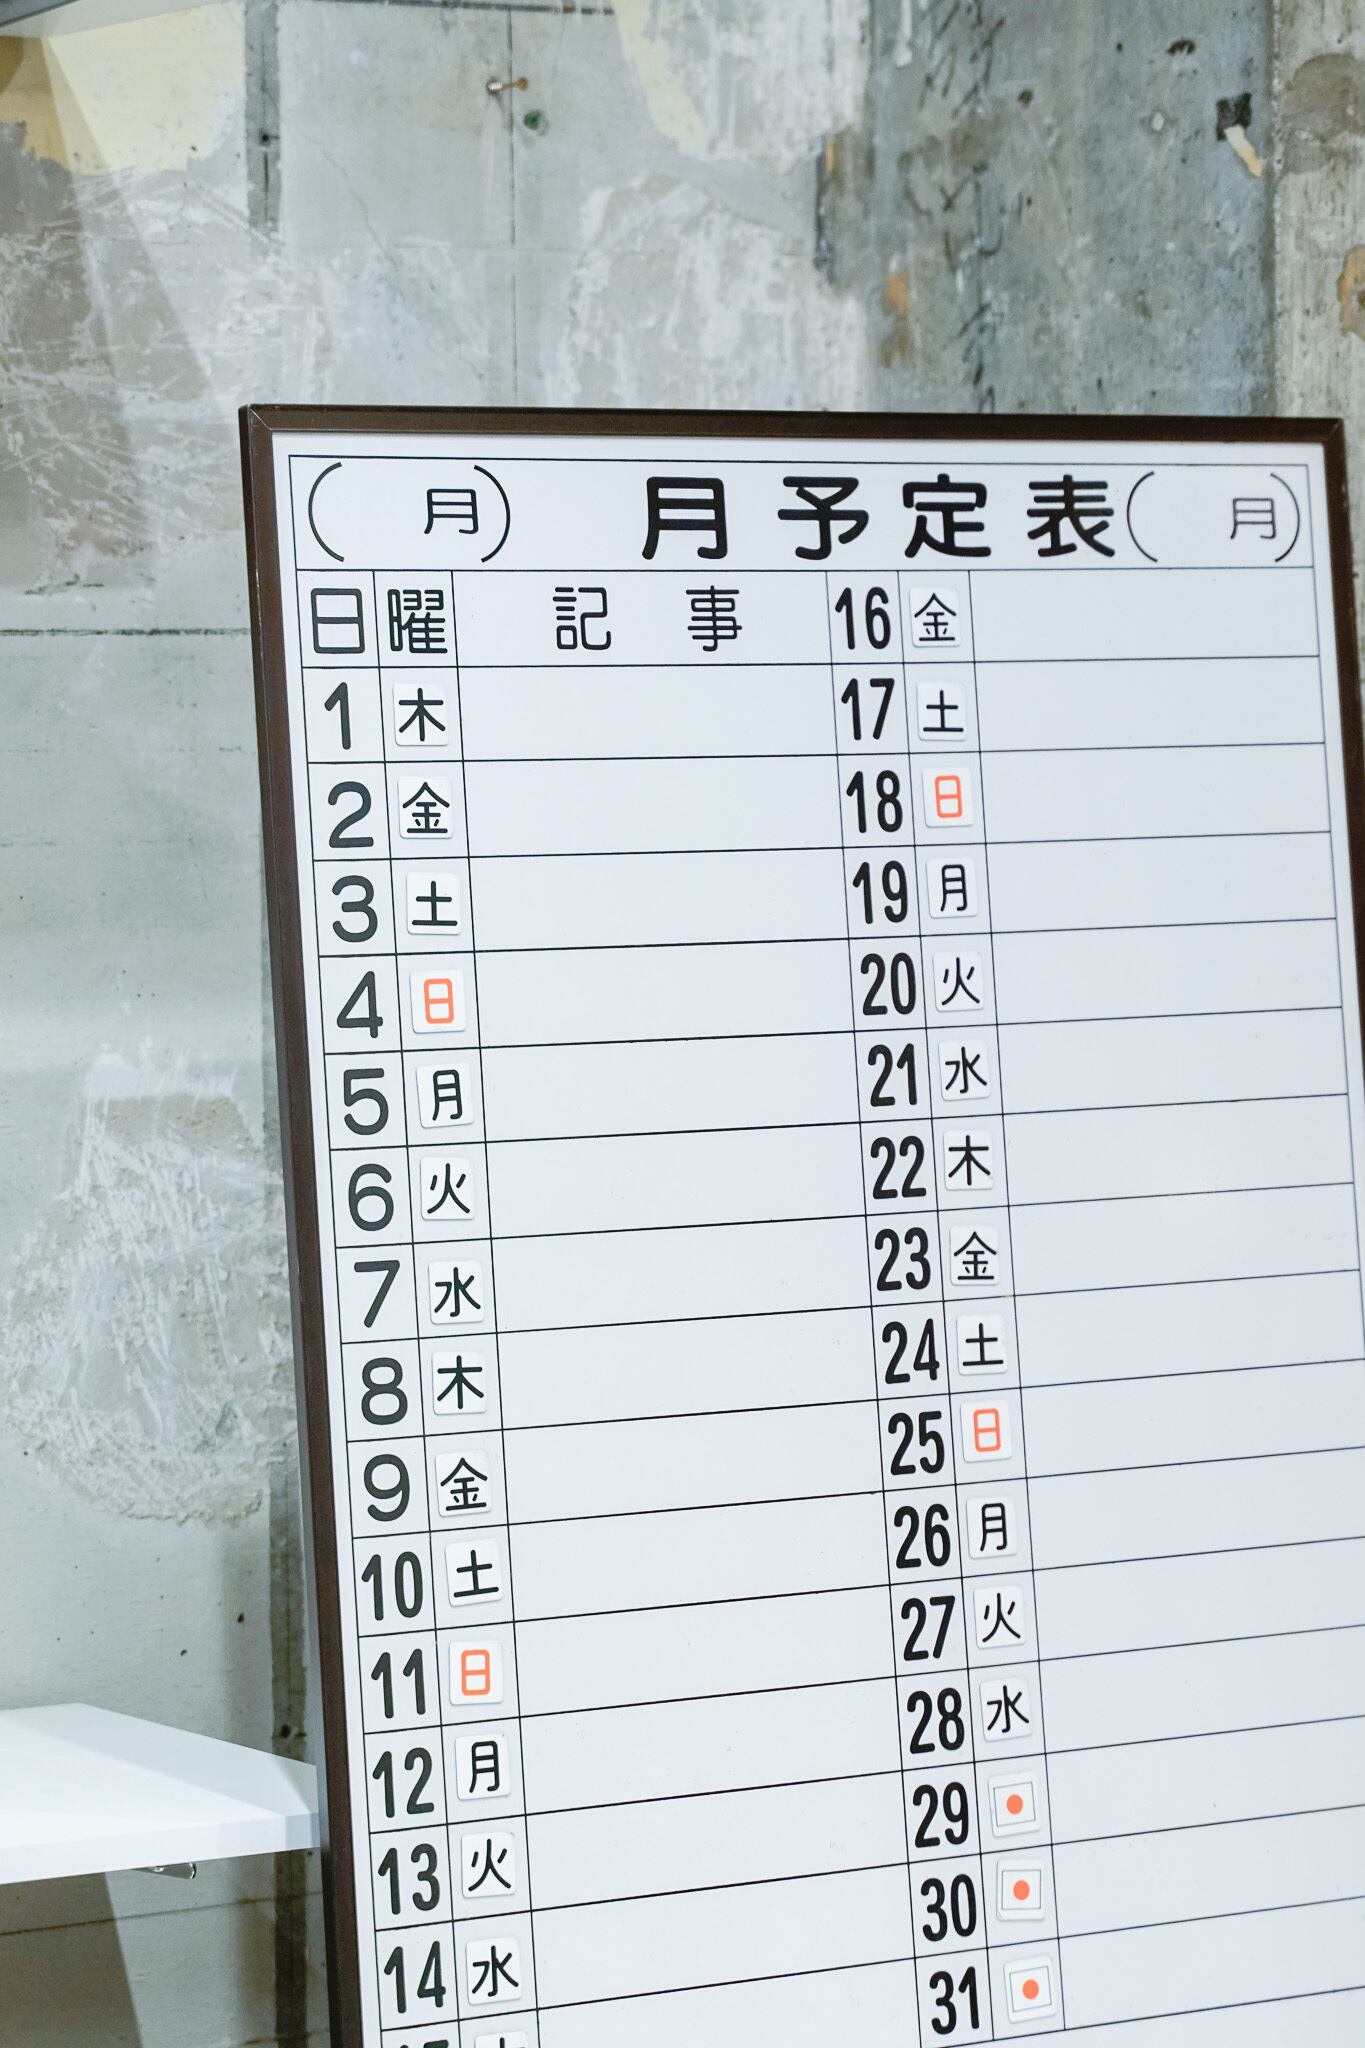 (月) 月予定表 (月)
日 曜 記事
1 木
2 金
3 土
4 日
5 月
6 火
7 水
8 木
9 金
10 土
11 日
12 月
13 火
14 水
16 金
17 土
18 日
19 月
20 火
21 水
22 木
23 金
24 土
25 日
26 月
27 火
28 水
29
30
31